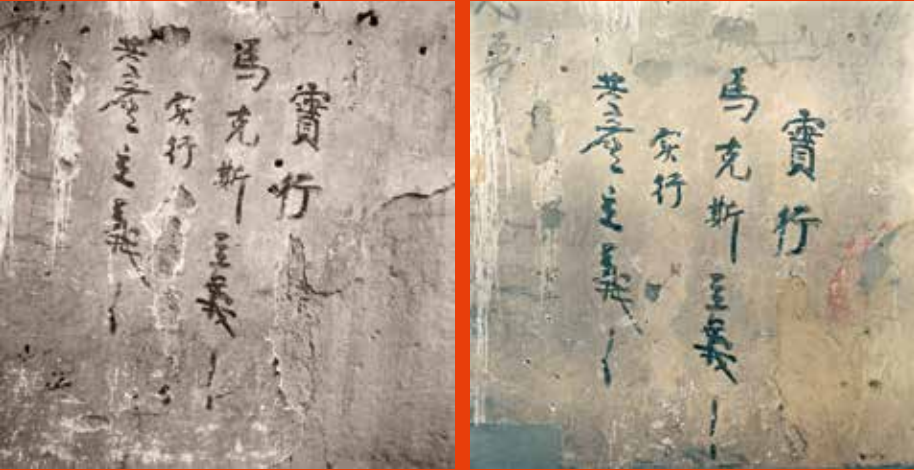 實行
馬克斯主義！
实行
共产主義！
實行
馬克斯主義！
实行
共产主義！